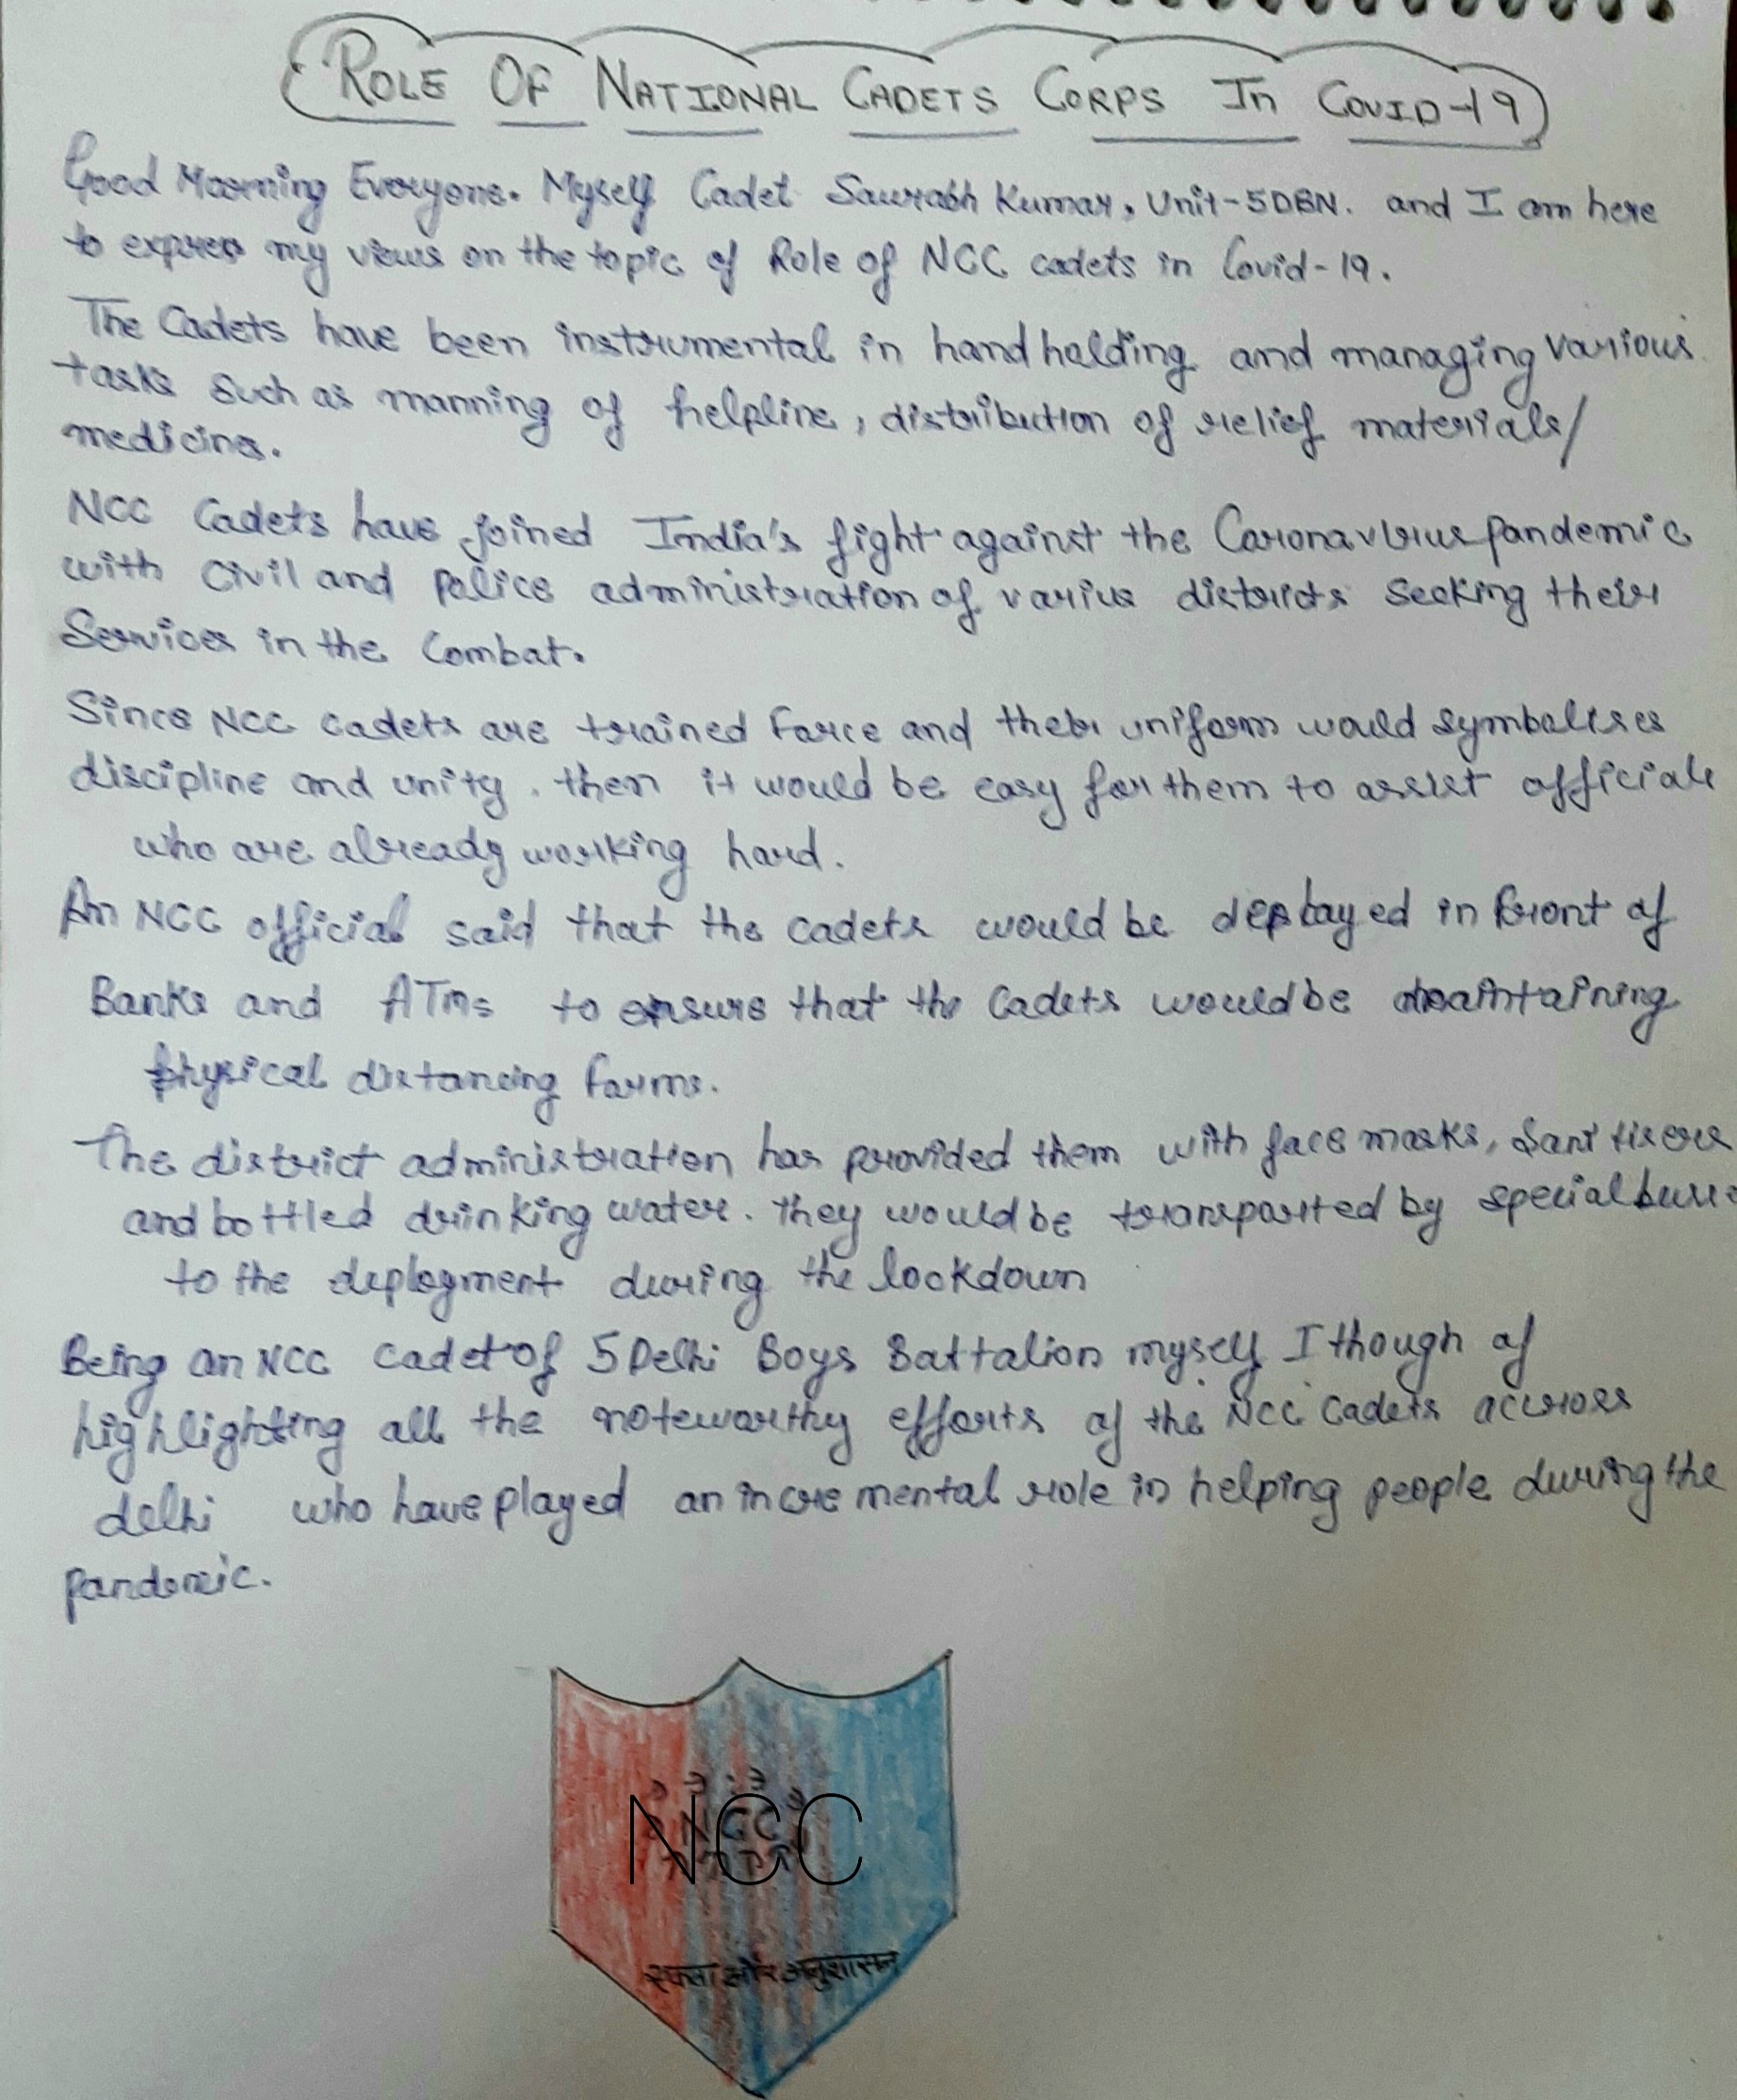 ROLE OF NATIONAL CADETS CORPS In COVID-19
Good Morning Everyone. Myself Cadet Saurabh Kumar, Unit-5DBN. and I am here
to express my views on the topic of Role of NCC cadets in Covid-19.
The Cadets have been instrumental in hand holding and managing various
tasks such as manning of helpline, distribution of relief materials/
medicine.
NCC Cadets have joined India's fight against the Coronavirus pandemic
with civil and police administration of varius districts seeking their
Services in the Combat.
Since NCC cadets are trained Force and their uniform would symbolises
discipline and unity. then it would be easy for them to assist officials
who are already working hard.
An NCC official said that the cadets would be deployed in front of
Banks and ATMs to ensure that the Cadets would be maintaining
physical distancing forms.
The district administration has provided them with face masks, Sanitisers
and bottled drinking water. they would be transported by special buses
to the deployment during the lockdown
Being an NCC cadet of 5 Delhi Boys Battalion myself I though of
highlighting all the noteworthy efforts of the NCC Cadets accross
delhi who have played an incremental role in helping people during the
pandemic.
NCC
NCC
एकता और अनुशासन